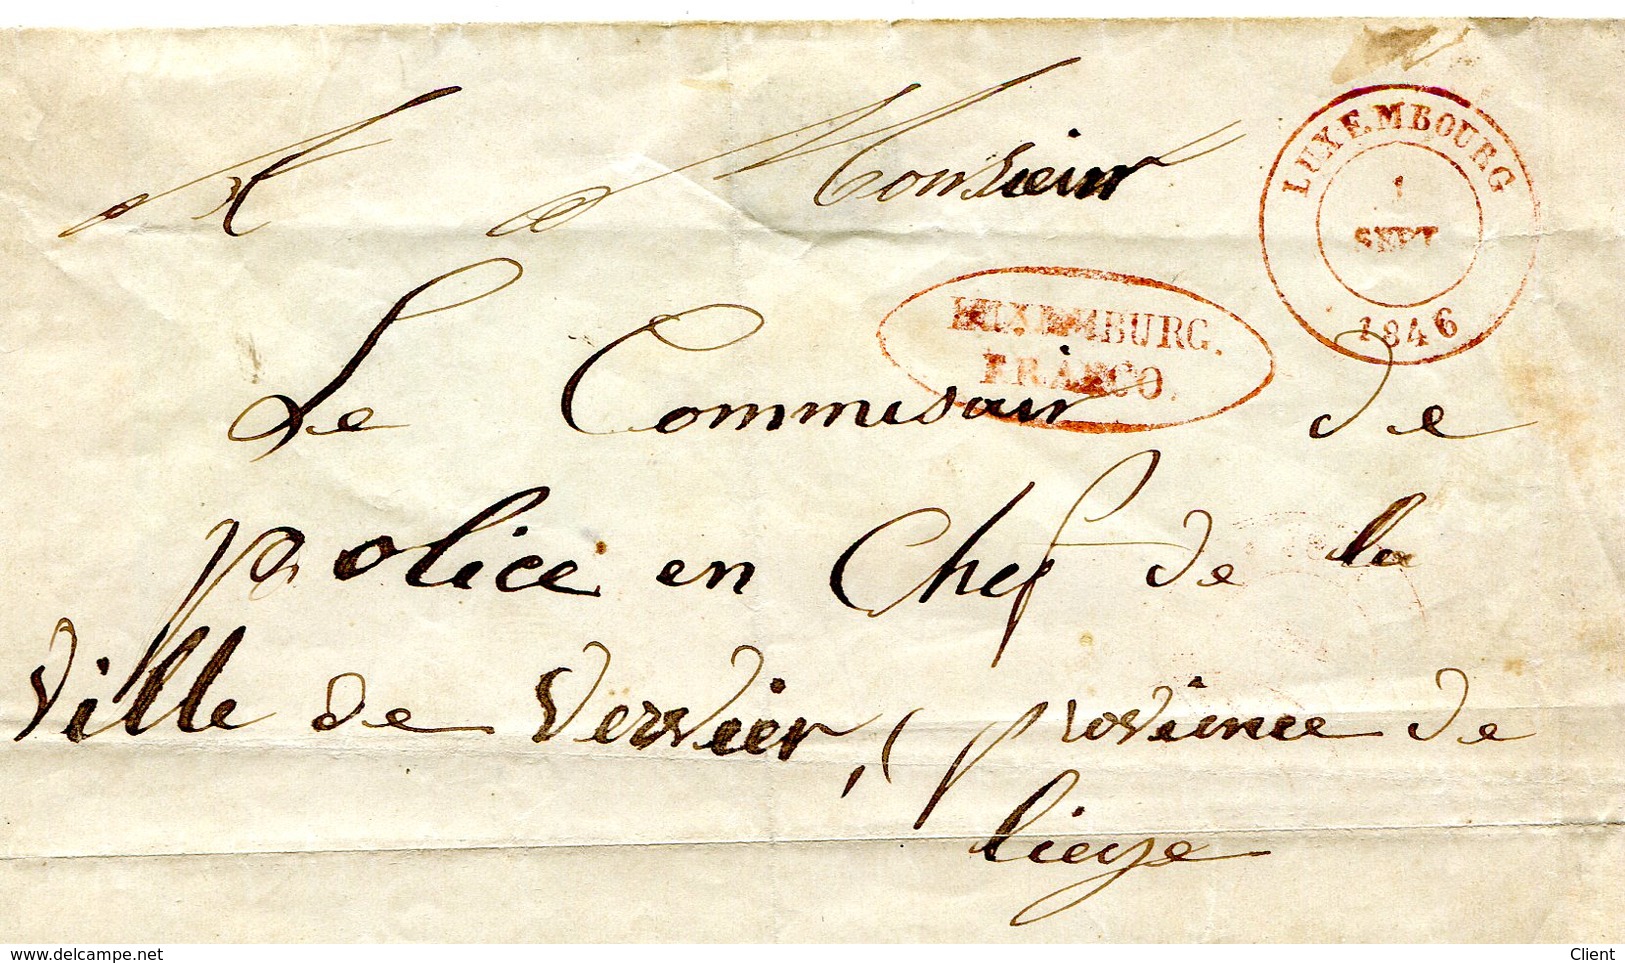 A Monsieur
LUXEMBOURG
1
SEPT
1846
LUXEMBURG.
FRANCO.
Le Commisair de
police en Chef de la
Ville de Vervier, (province de
liege
© delcampe.net
Client